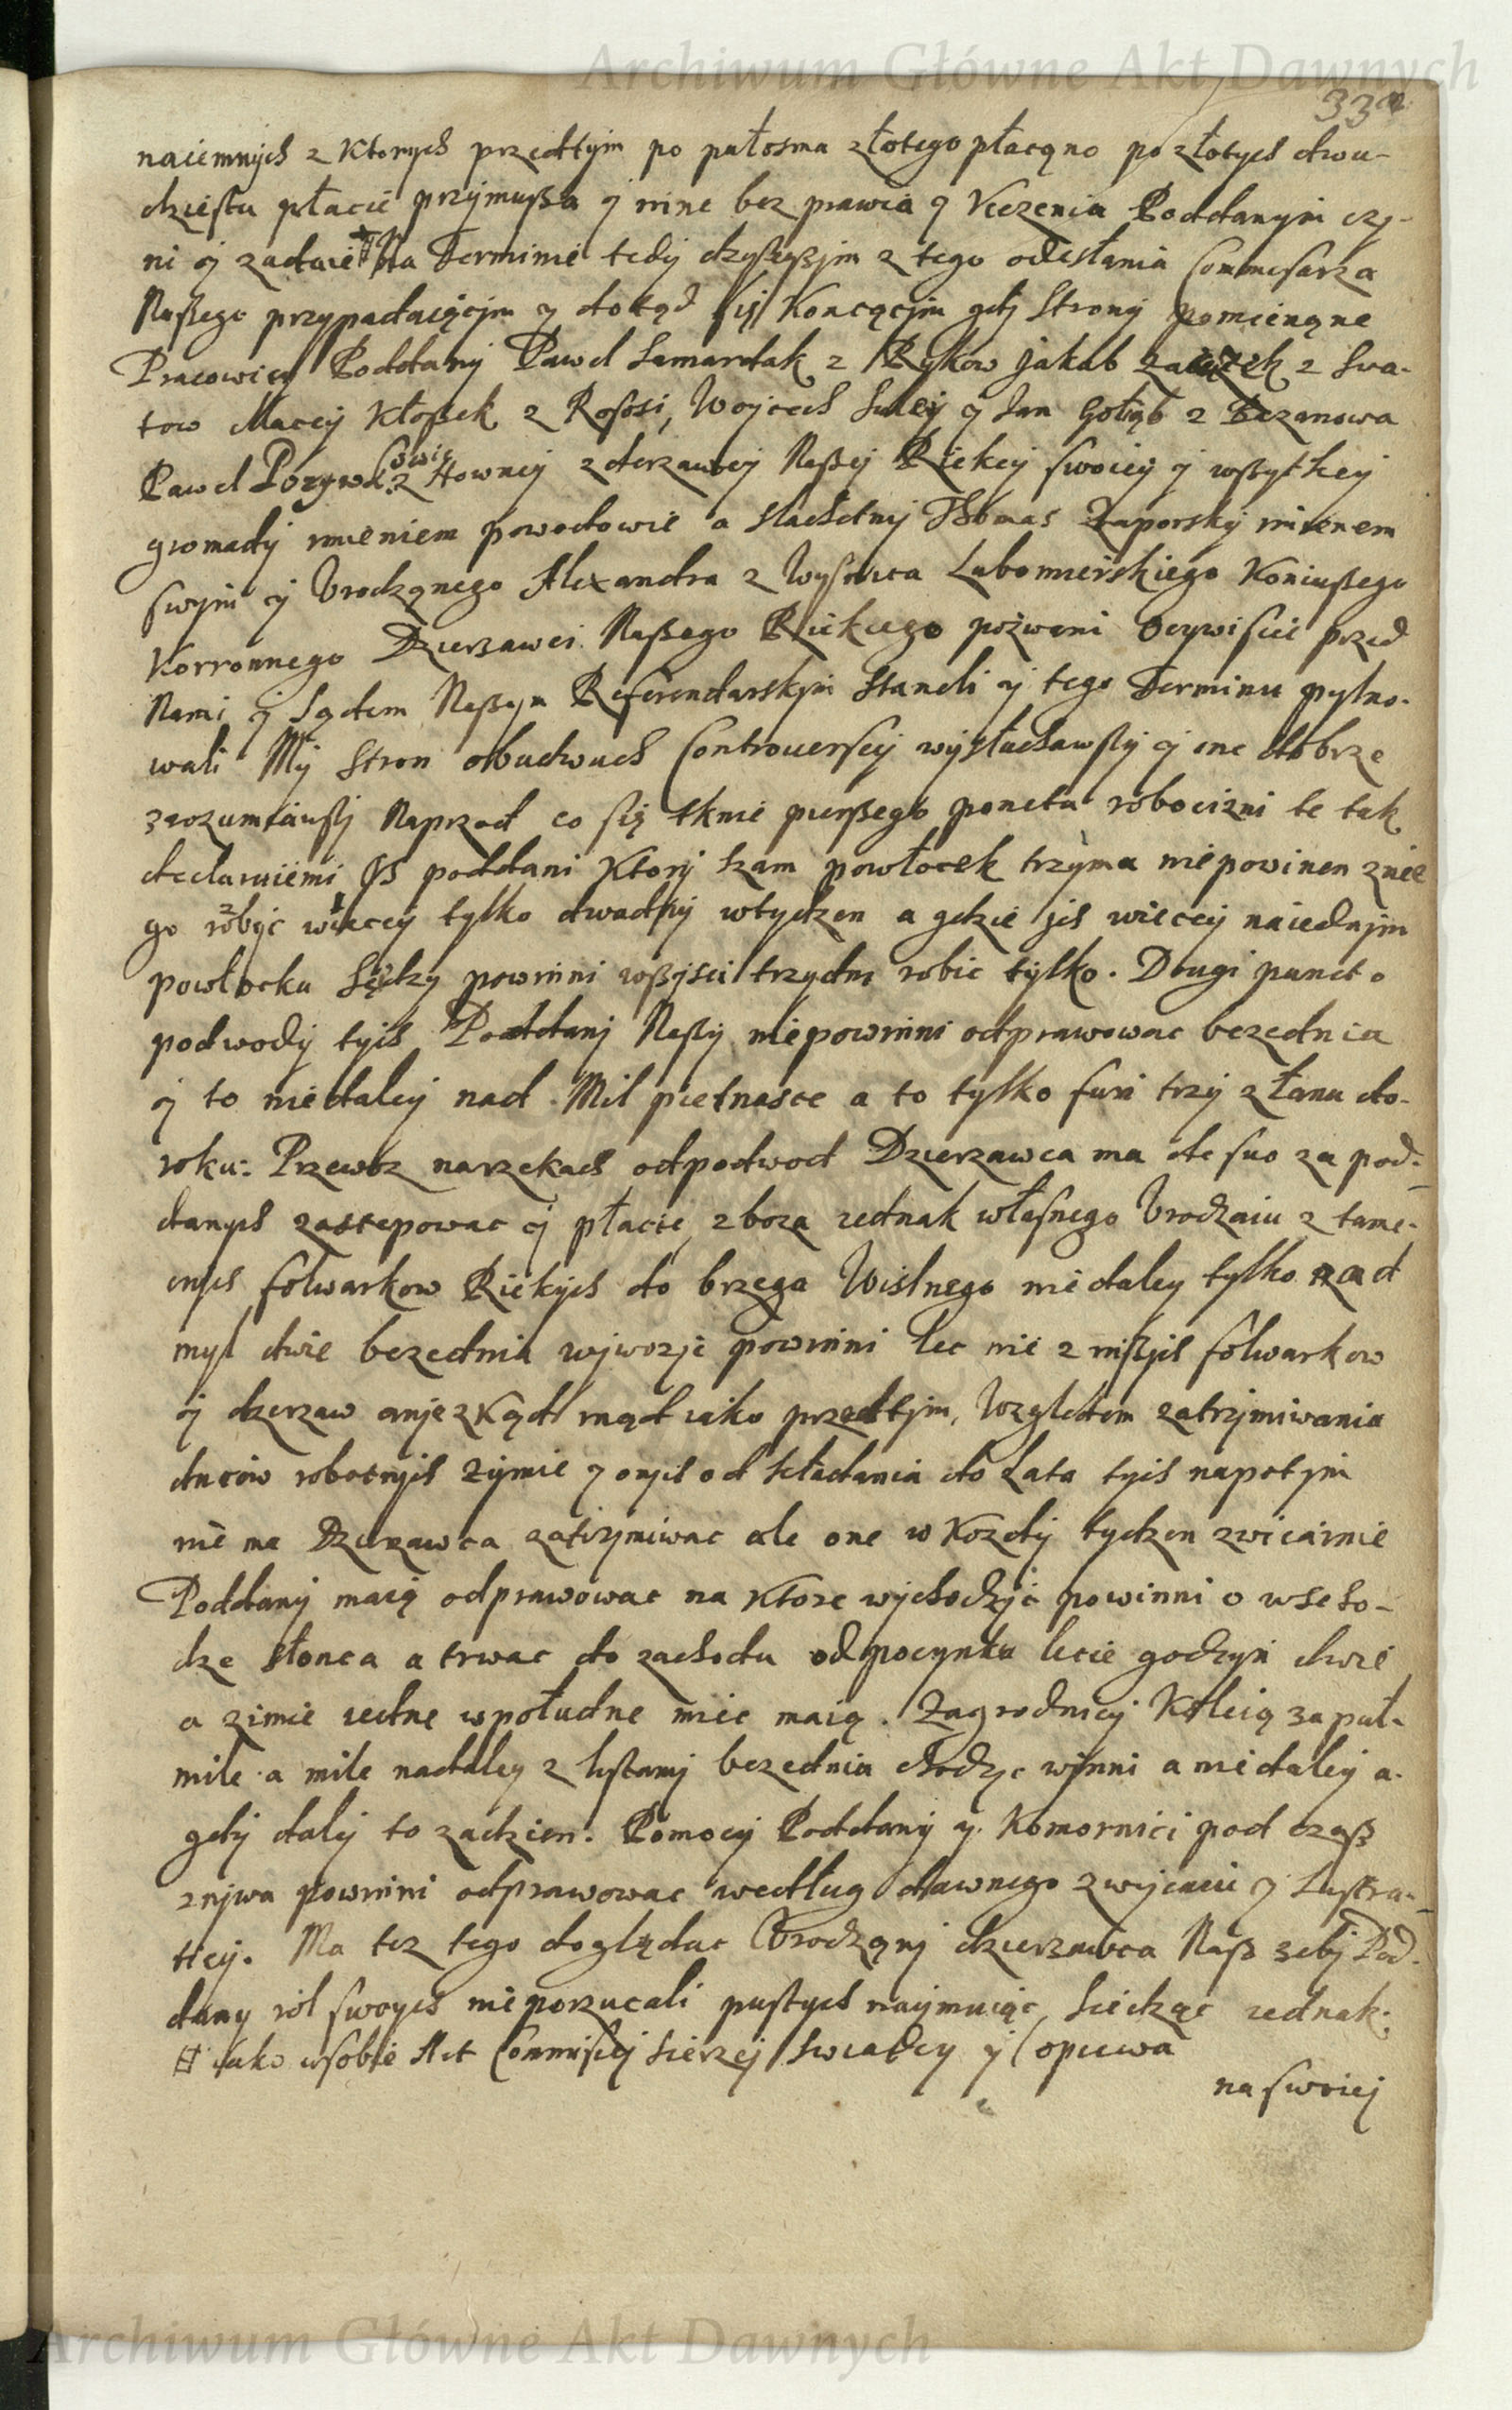 Archiwum Główne Akt Dawnych
332
naiemnych z Ktorych przedtym po pułosma złotego płacąno po złotych dwu-
dziestu płacić przymusza y inne bez prawia y Vciązenia Poddanym czy-
ni y zadaie # Na Terminie tedy dzyszyszym z tego odesłania Commisarza
Naszego przypadaiącym y dotąd się Koncącym gdy Strony pomienąne
Pracowici Poddany Pawel Samardak z Rykow Jakub z Swa-
tow Maciej Kłossek z Rososi, Woyciech Sulej y Jan Gołąb z Bazanowa
Pawel z Hownej z dzerzawy Naszej Rickiej swoiej y wszytkiej
gromady imieniem powodowie a slachetny Thomas Zaporsky imienem
swym y Vrodzonego Alexandra z Wysnica Lubomierskiego Koniuszego
Korronnego Dzierzawci Naszego Rickiego pozwani oczywiscie przed
Nami y Sądem Naszym Referendarskym staneli y tego Terminu pylno-
wali My Stron obuchwuch Controuersey wysłuchawszy y one dobrze
zrozumiawszy Naprzod co się tknie pierszego punctu robocizni te tak
declaruiemi Jż poddani Ktory szam powłocek trzyma niepowinen znie
go robyc wiecey tylko dwadny wtydzen a gdzie jch wiecey naiednym
powłocku Siedzy powinni wszysci trzydni robic tylko. Drugi punct o
podwody tych Poddany Naszy niepowinni odprawowac bezednia
y to niedaley nad Mil pietnasce a to tylko furi trzy z łanu do-
roku: Przewoz narzekach odpodwod Dzierzawca ma de suo za pod-
danych zastepowac y płacic, zboza iednak własnego Vrodzaiu z tame-
cnych folwarkow Rickych do brzega Wislnego niedaley tylko nad
myl dwie bezednia wywozyc powinni lec nie z inszych folwarkow
y dzerzaw anjezkąd inąd iako przedtym, Wzgledem zatrzymiwania
dniow robotnych zymie y onych od kładania do Lata tych napotym
nie ma Dzierzawca zatrzymiwac ale one w Kozdy tydzen zwicainie
Poddany maią odprawowac na Ktore wychodzyc powinni o wscho-
dze słonca a trwac do zachodu odpocynku lecie godzyn dwie
a zimie iedne wpołudne miec maią. Zagrodnicy Koleią za puł-
mile a mile nadaley z listamy bezednia chodzyc winni a niedaley a-
gdy daley to zadzien. Pomocy Poddany y Komornici pod czasz
znywa powinni odprawowac według dawnego zwyczaiu y Lustra-
tiey. Ma tez tego doglądac Vrodzony dzierzawca Nasz zeby Pod-
dany rol swoych nieporzucali pustych naymuiąc, Siedząc iednak
# iako wsobie Act Commissiej sierzej swiadcy y opiewa
na swoiej
Archiwum Główne Akt Dawnych